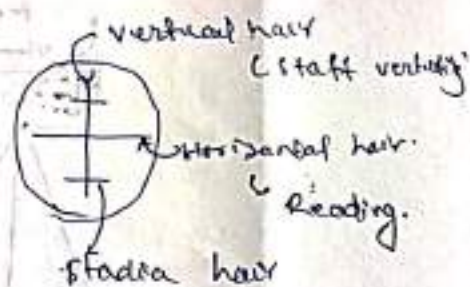 vertical hair
(staff verticality
Horizontal hair.
Reading.
Stadia hair